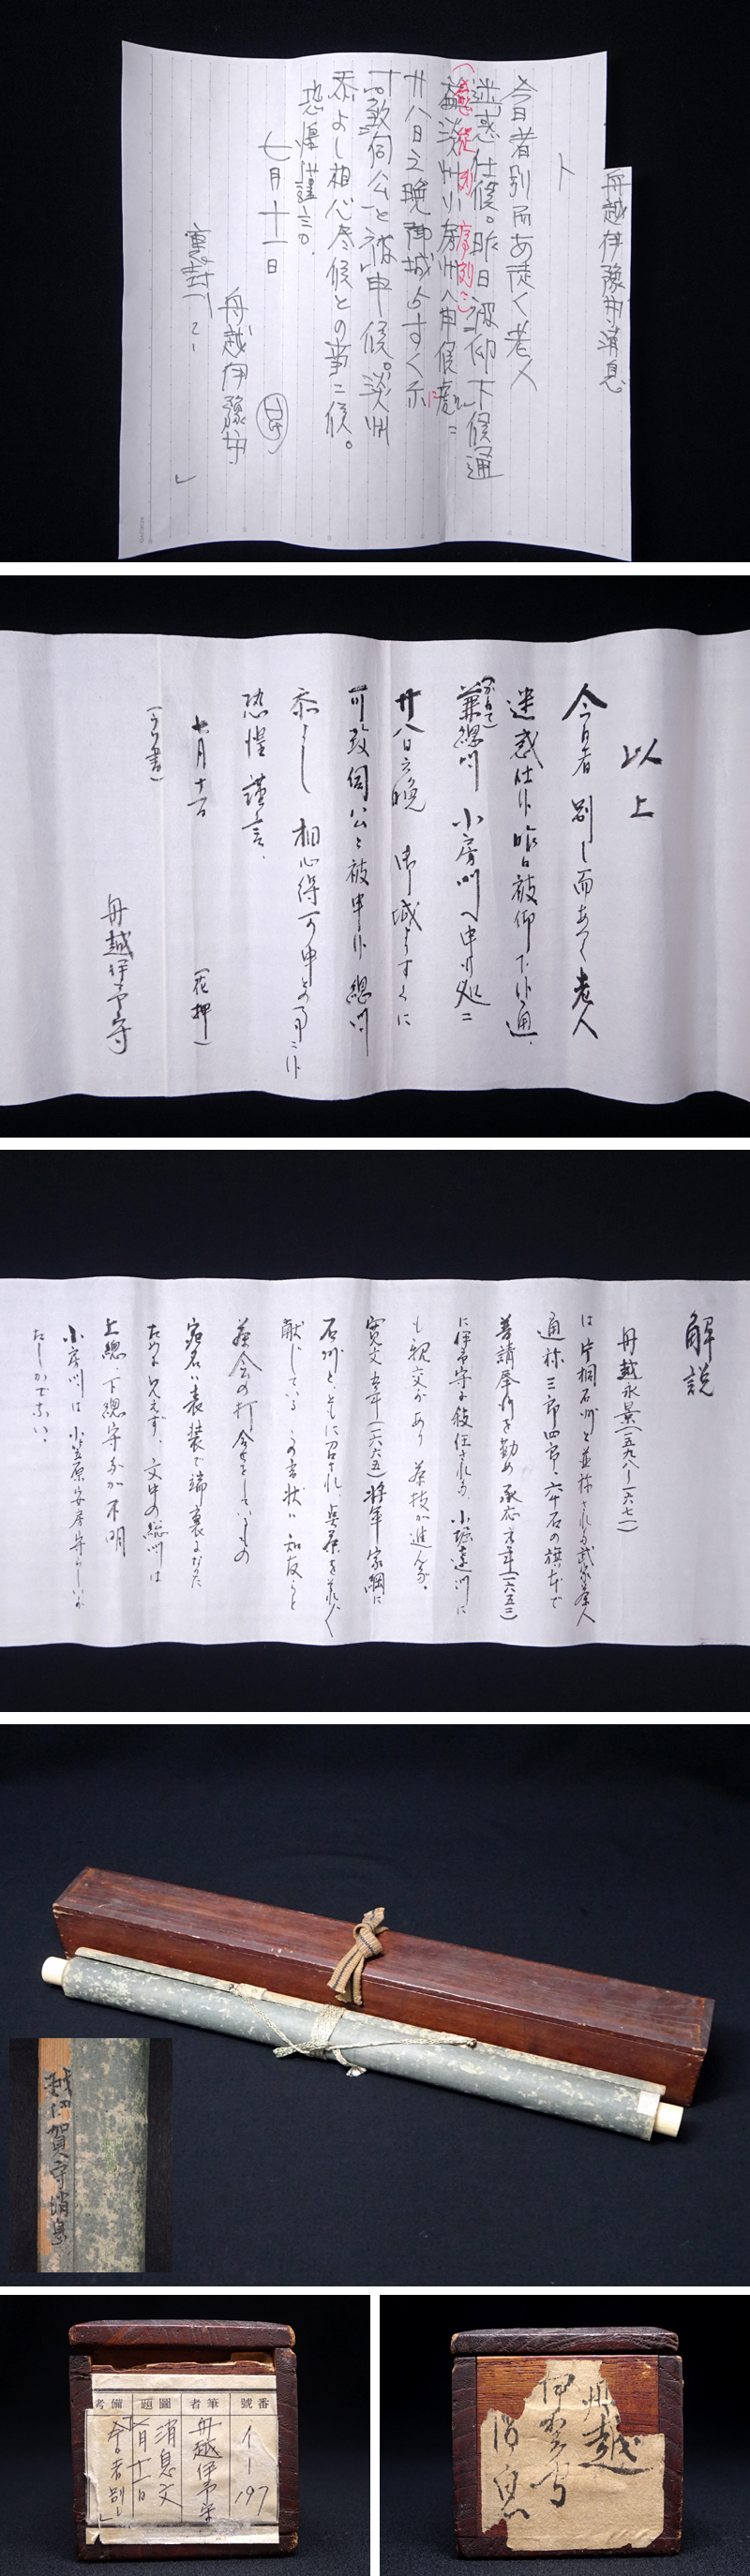 舟越伊豫守消息
ト
今日者別而あ徒く老人
迷惑仕候。昨日被仰下候通
淡州小房州へ申候處ニ
廿八日之晩御城ゟすく尓
可致伺公と被申候。淡州
忝よし相心尽候との事ニ候。
恐惶謹言。
七月十一日
舟越伊豫守
裏封
以上
今日者別し而あつく老人
迷惑仕候昨日被仰下候通、
(かねて)
兼總州 小房州へ申候処ニ
廿八日之晩 御城よりすくに
可致伺公と被申候 總州
忝よし 相心得可申との事ニ候
恐惶謹言、
七月十一日 (花押)
(うら書)
舟越伊予守
解説
舟越永景(一五九八〜一六七一)
は片桐石州と並称される武家茶人
通称三郎四郎・六千石の旗本で
普請奉行を勤め 承応元年(一六五二)
に伊予守に叙任される、小堀遠州に
も親交があり 茶技が進んだ。
寛文五年(一六六五)将軍家綱に
石州と、ともに召され、点茶を
献じている この書状は 知友らと
茶会の打合せをしているもの
宛名は表装で端裏になった
ため見えず、文中の総州は
上總、下總守だが不明
小房州は 小笠原安房守らしいが
たしかでない。
越伊賀守消息
番號
筆者
圖題
備考
イー197
舟越伊予守
消息文
七月十一日
「今日者別し」
舟越
伊賀守
消息